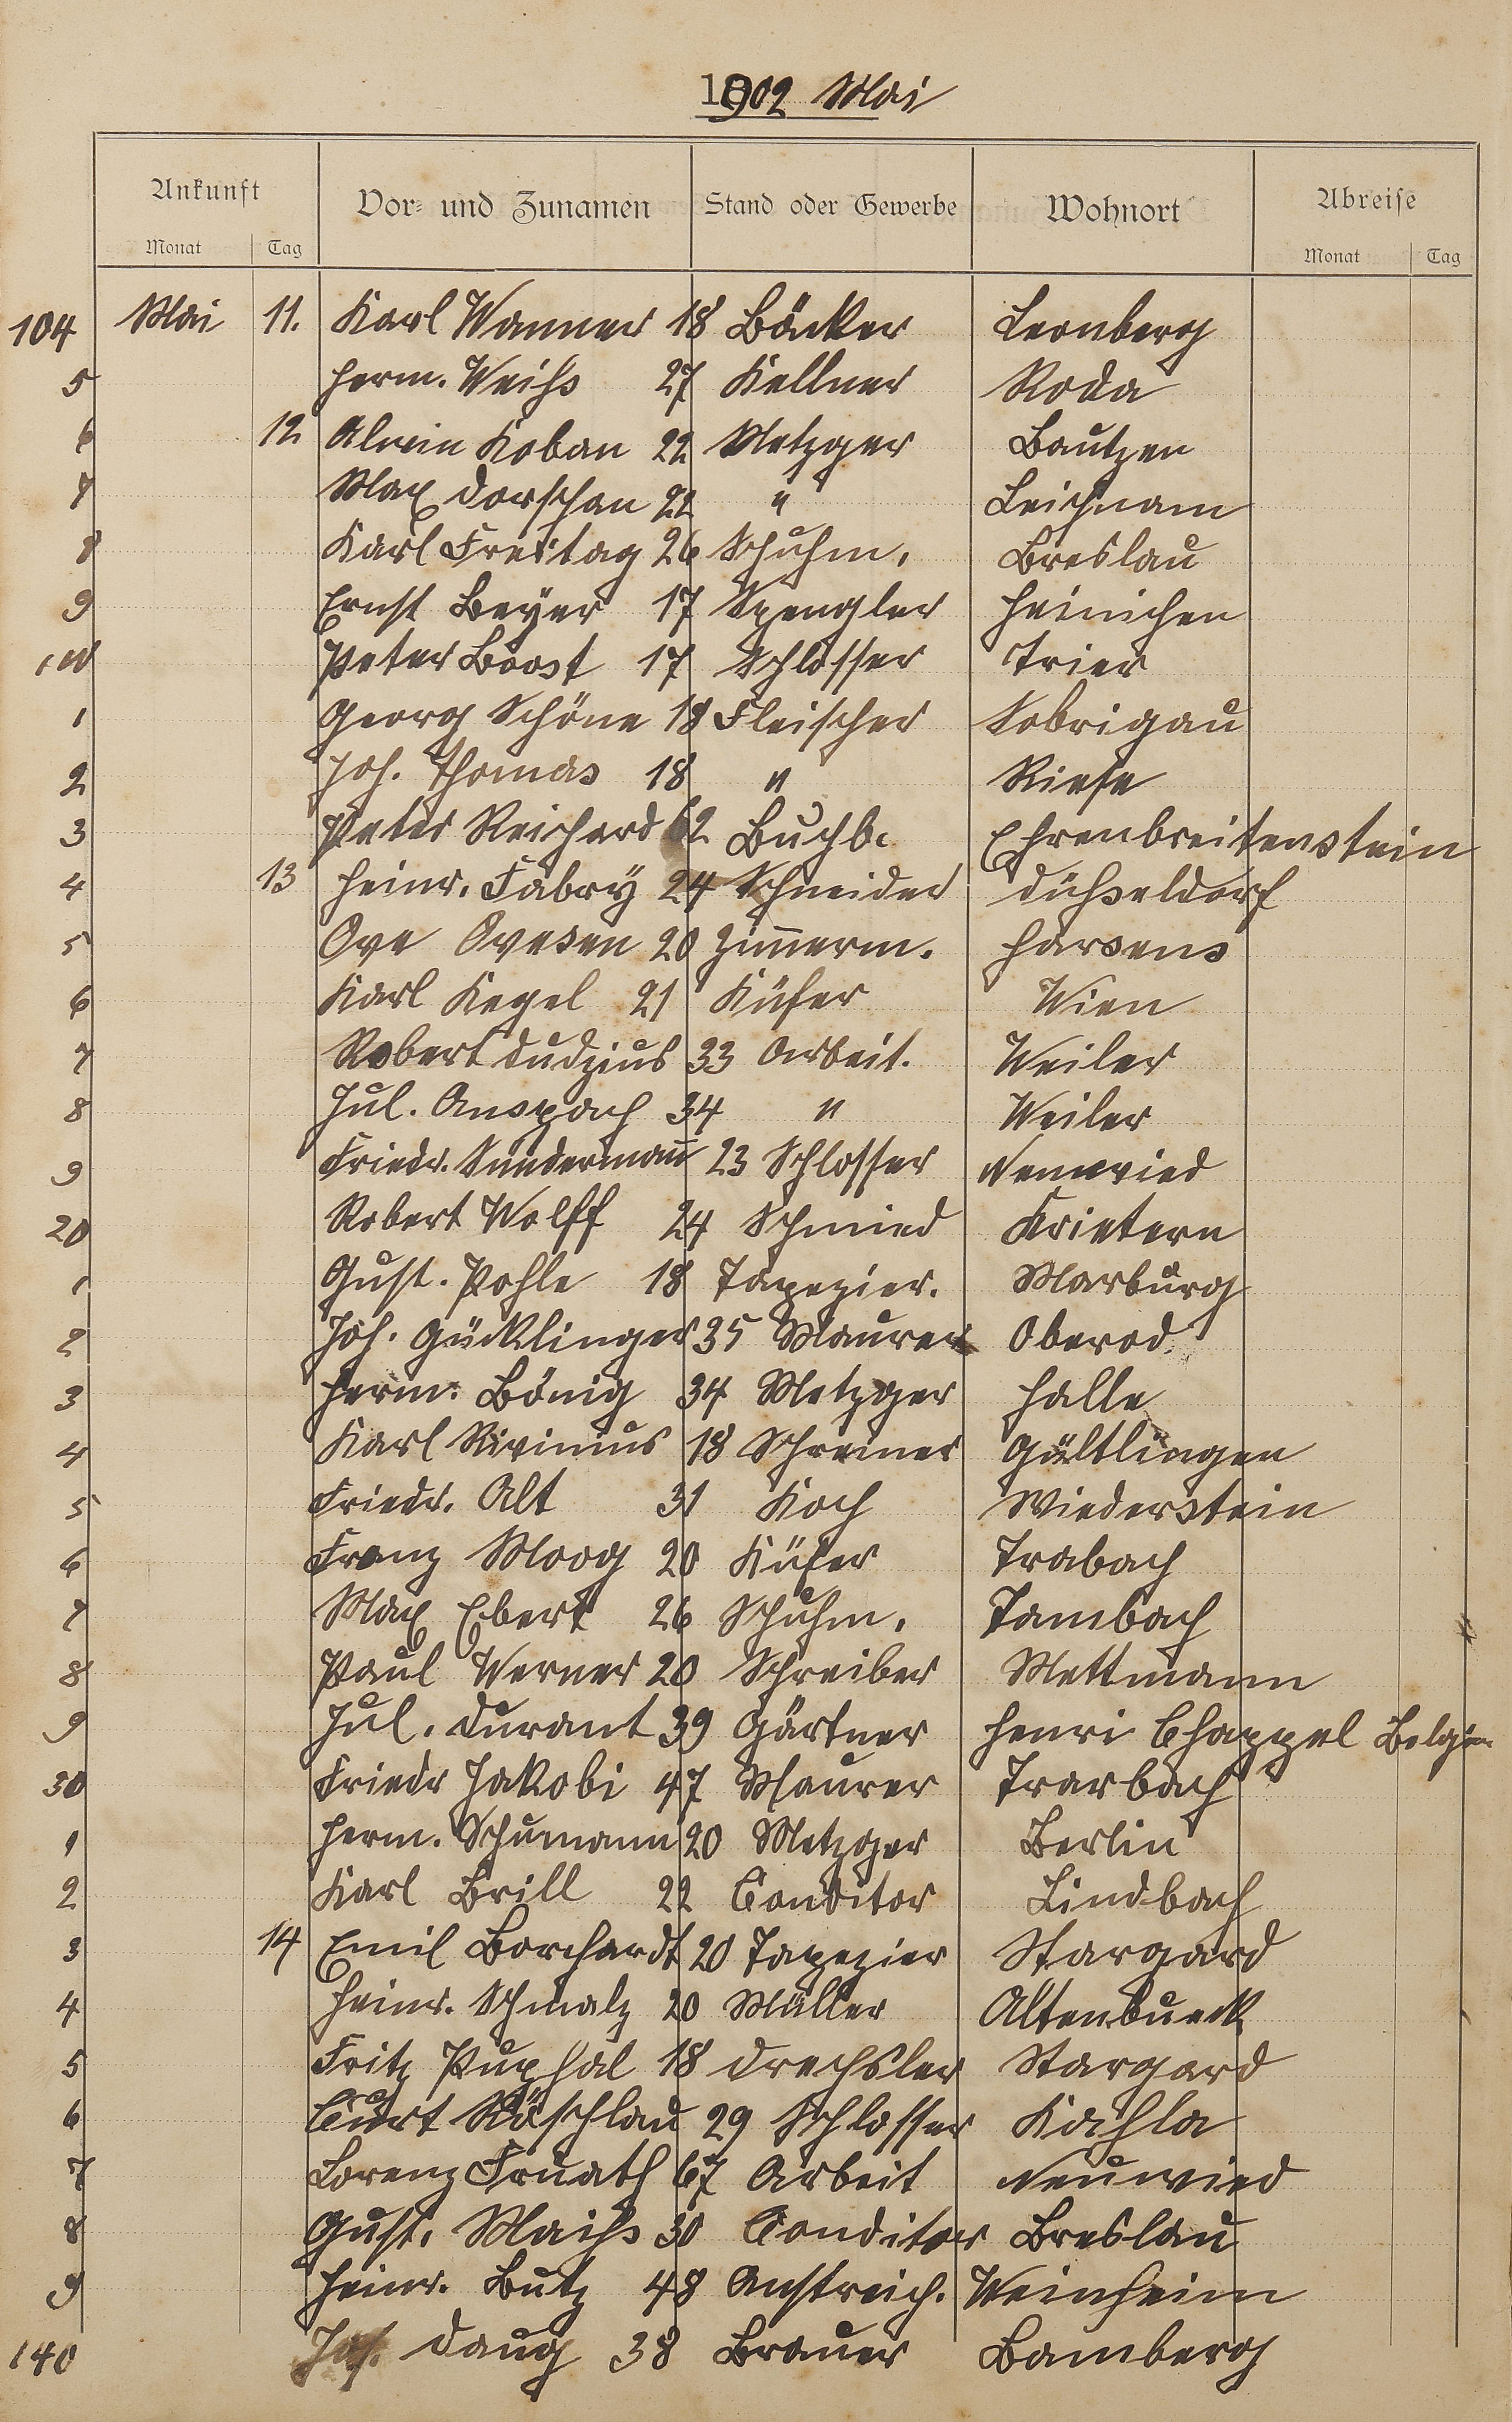 1902 Mai
Ankunft Vor- und Zunamen Stand oder Gewerbe Wohnort Abreise
Monat Tag Monat Tag
104 Mai 11. Karl Wanner 18 Bäcker Leonberg
5 Herm. Weihs 27 Kellner Roda
6 12 Alwin Koban 22 Metzger Bautzen
7 Max Dorschan 22 " Leichnam
8 Karl Freitag 26 Schuhm. Breslau
9 Ernst Beyer 17 Spengler Heinichen
110 Peter Boost 17 Schlosser Trier
1 Georg Schöne 18 Fleischer Sobrigau
2 Joh. Thomas 18 " Riesa
3 Peter Reichard 62 Buchb. Ehrenbreitenstein
4 13 Heinr. Fabry 24 Schneider Dühseldorf
5 Ove Ovesen 20 Zimmerm. Harsens
6 Karl Kegel 21 Küfer Wien
7 Robert Dudzius 33 Arbeit. Weiler
8 Jul. Anspach 34 " Weiler
9 Friedr. Sundermann 23 Schlosser Neuwied
20 Robert Wolff 24 Schmied Krietern
1 Gust. Pohle 18 Tapezier. Marburg
2 Joh. Gücklinger 35 Maurer Oberod.
3 Herm. Bönig 34 Metzger Halle
4 Karl Rivinius 18 Schreiner Gültlingen
5 Friedr. Alt 31 Koch Wiederstein
6 Franz Moog 20 Küfer Trabach
7 Max Ebert 26 Schuhm. Tambach
8 Paul Werner 20 Schreiber Mettmann
9 Jul. Durant 39 Gärtner Henri Chappel Belgien
30 Friedr Jakobi 47 Maurer Trarbach
1 Herm. Schumann 20 Metzger Berlin
2 Karl Brill 22 Conditor Lindbach
3 14 Emil Borchardt 20 Tapezier Stargard
4 Heinr. Schmalz 20 Müller
5 Fritz Puphal 18 Drechsler Stargard
6 Curt Röschlau 29 Schlosser Kahla
7 Lorenz 67 Arbeit Neuwied
8 Gust. Maihs 30 Conditor Breslau
9 Heinr. Butz 48 Anstreich. Weinheim
140 Joh. Daug 38 Brauer Bamberg